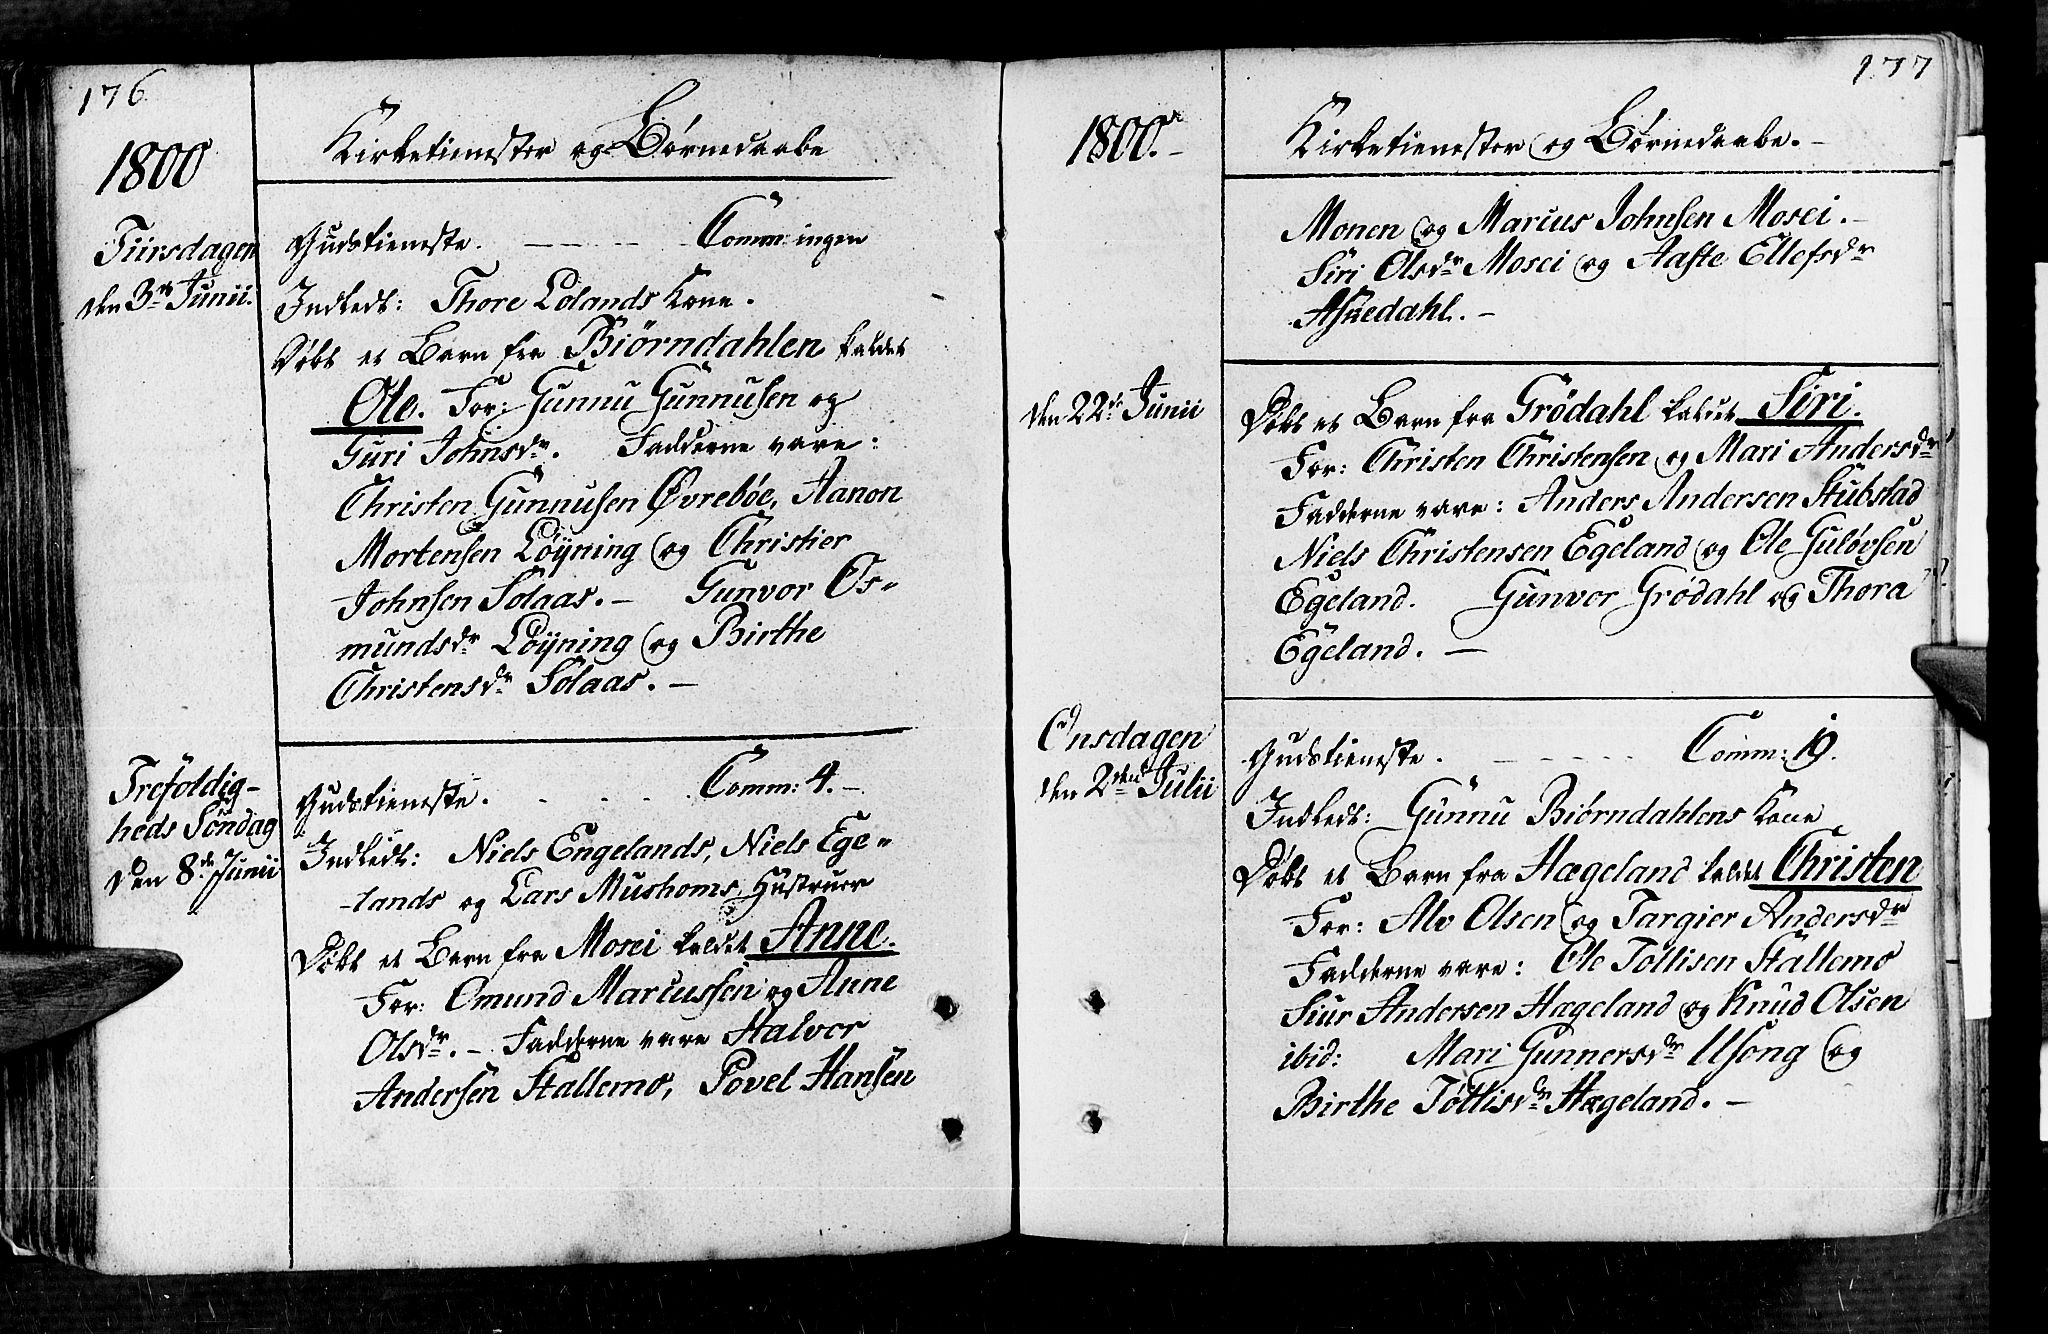 176.
1800
Kirketienester og Børnedaabe
Tiirsdagen
den 3die Junii.
Gudstieneste. - - - - Comm: ingen
Indledt: Thore Lolands Kone.
Døbt et Barn fra Biørndahlen kaldet
Ole. For: Gunnu Gunnusen og
Guri Johnsdr. Fadderne vare:
Christen Gunnusen Øvrebøe, Aanon
Mortensen Løyning og Christier
Johnsen Solaas. - Gunvor Os-
mundsdr Løyning og Birthe
Christensdr Solaas. -
Trefoldig-
heds Søndag
den 8de Junii
Gudstieneste. - - - Comm: 4. -
Indledt: Niels Engelands, Niels Ege-
lands og Lars Mushoms Hustruer
Døbt et Barn fra Mosei kaldet Anne.
For: Omund Marcussen og Anne
Olsdr. - Fadderne vare Halvor
Andersen Stallemo, Povel Hansen
177
1800. -
Kirketienester og Børnedaabe. -
Monen og Marcus Johnsen Mosei. -
Siri Olsdr Mosei og Aaste Ellefsdr
Asuedahl. -
den 22de Junii
Døbt et Barn fra Grødahl kaldet Siri.
For: Christen Christensen og Mari Andersdr
Fadderne vare: Anders Andersen Stubstad
Niels Christensen Egeland og Ole Guløvsen
Egeland. Gunvor Grødahl og Thora
Egeland. -
Onsdagen
den 2den Julii
Gudstieneste. - - - - - Comm: 19.
Indledt: Gunnu Biørndahlens Kone
Døbt et Barn fra Hægeland kaldet Christen
For: Alv Olsen og Targier Andersdr
Fadderne vare: Ole Tollisen Stallemo
Siur Andersen Hægeland og Knud Olsen
ibid: Mari Gunnersdr Usong og
Birthe Tøllisdr Hægeland. -